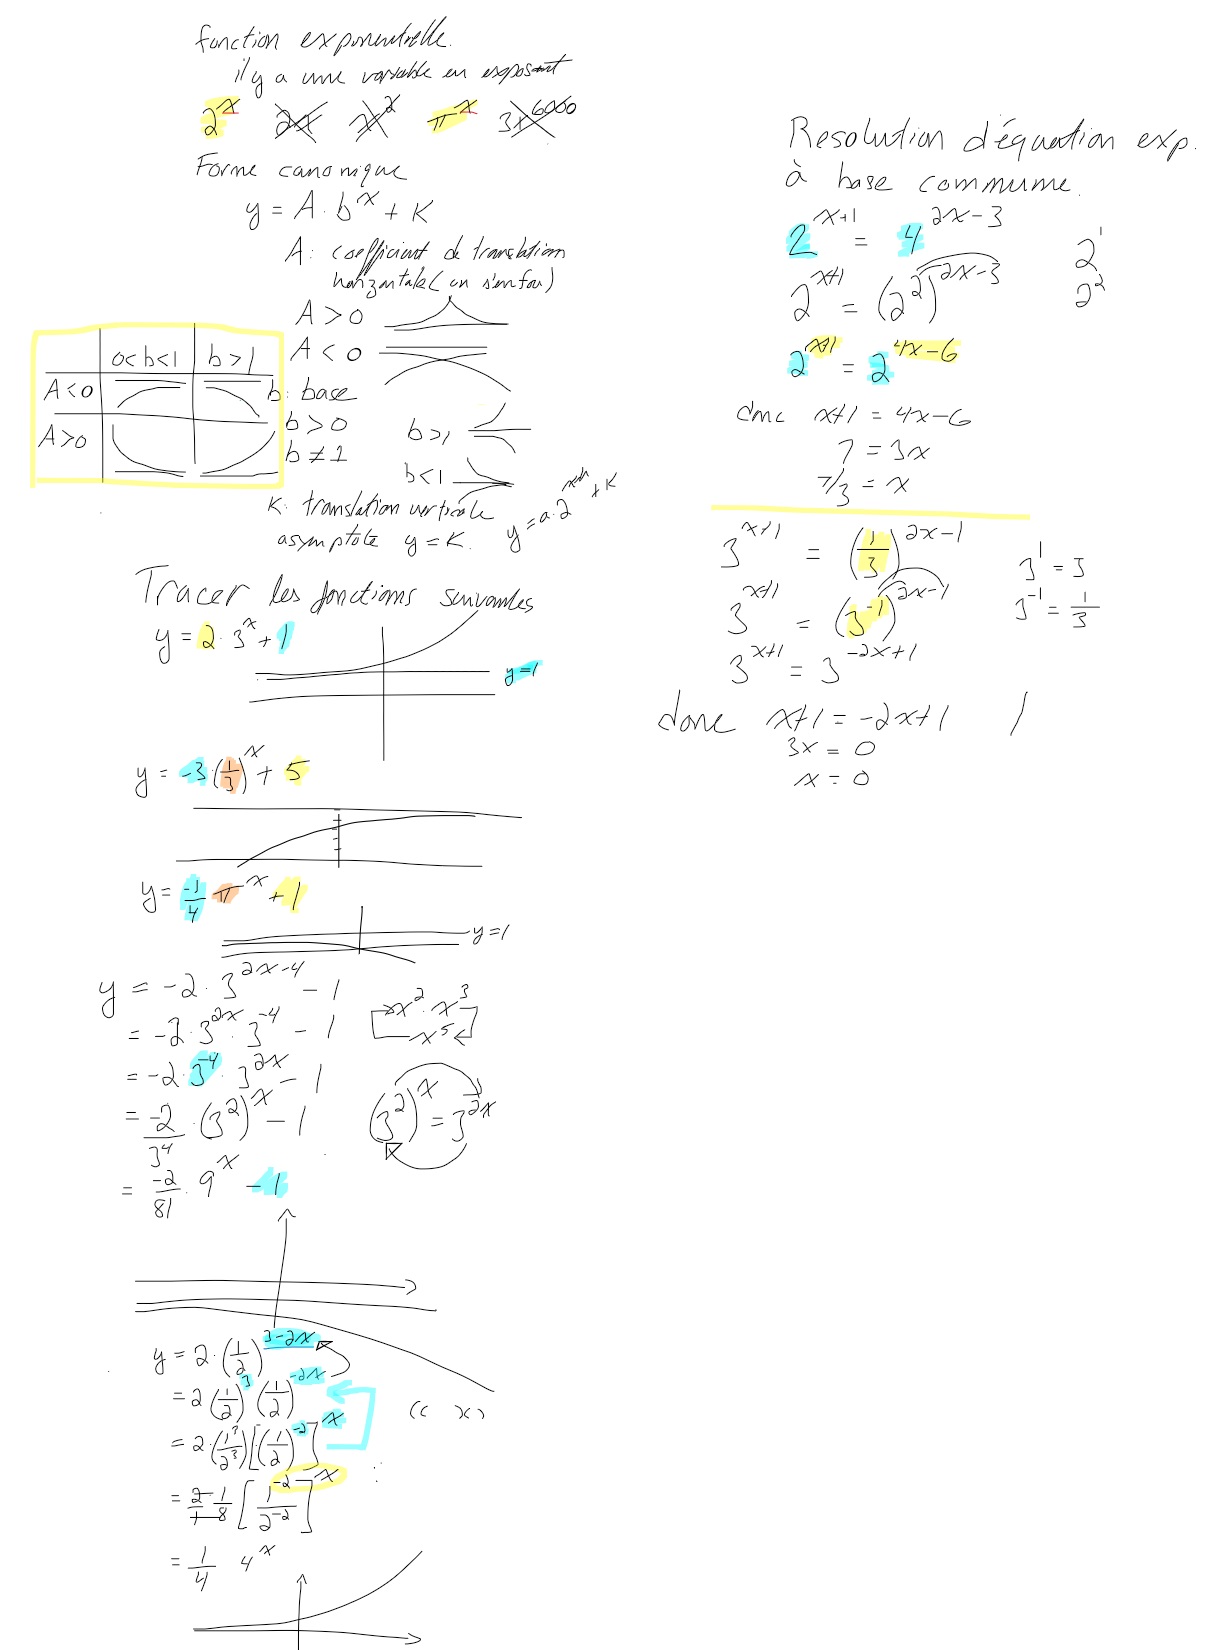 fonction exponentielle.
il y a une variable en exposant
2^x 2x x^2 π^x 3x^6000
Forme canonique
y = A · b^x + K
A : coefficient de translation
horizontale (on s'en fou)
A > 0
A < 0
0<b<1 b>1
A<0
A>0
b : base
b > 0
b ≠ 1
b>1
b<1
K : translation verticale
asymptote y = K.
y = a · 2^(x+h) + K
Tracer les fonctions suivantes
y = 2 · 3^x + 1
y=1
y = -3 · (1/3)^x + 5
y = -1/4 π^x + 1
y=1
y = -2 · 3^(2x-4) - 1
= -2 · 3^(2x) · 3^(-4) - 1
= -2 · 3^(-4) · 3^(2x) - 1
= -2/3^4 · (3^2)^x - 1
= -2/81 · 9^x - 1
x^2 · x^3
x^5
(3^2)^x = 3^(2x)
y = 2 · (1/2)^(3-2x)
= 2 (1/2)^3 (1/2)^(-2x)
= 2 · (1^3/2^3) [(1/2)^(-2)]^x
= 2/1 1/8 [1^(-2)/2^(-2)]^x
= 1/4 4^x
Resolution d'équation exp.
à base commune.
2^(x+1) = 4^(2x-3) 2^1
2^(x+1) = (2^2)^(2x-3) 2^2
2^(x+1) = 2^(4x-6)
donc x+1 = 4x-6
7 = 3x
7/3 = x
3^(x+1) = (1/3)^(2x-1) 3^1 = 3
3^(x+1) = (3^(-1))^(2x-1) 3^(-1) = 1/3
3^(x+1) = 3^(-2x+1)
donc x+1 = -2x+1
3x = 0
x = 0